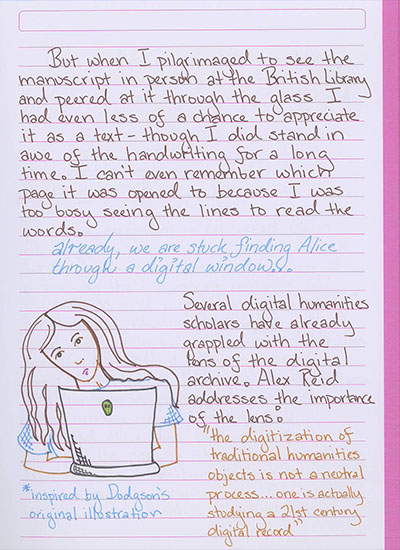 But when I pilgrimaged to see the
manuscript in person at the British Library
and peered at it through the glass I
had even less of a chance to appreciate
it as a text - though I did stand in
awe of the handwriting for a long
time. I can't even remember which
page it was opened to because I was
too busy seeing the lines to read the
words.
already, we are stuck finding Alice
through a digital window...
Several digital humanities
scholars have already
grappled with the
lens of the digital
archive. Alex Reid
addresses the importance
of the lens:
"the digitization of
traditional humanities
objects is not a neutral
process.... one is actually
studying a 21st century
digital record"
*inspired by Dodgson's
original illustration